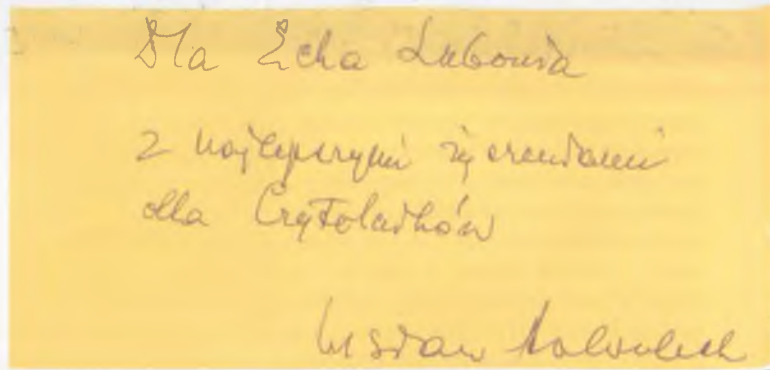 Dla Echa Lubonia
z najlepszymi życzeniami
dla Czytelników